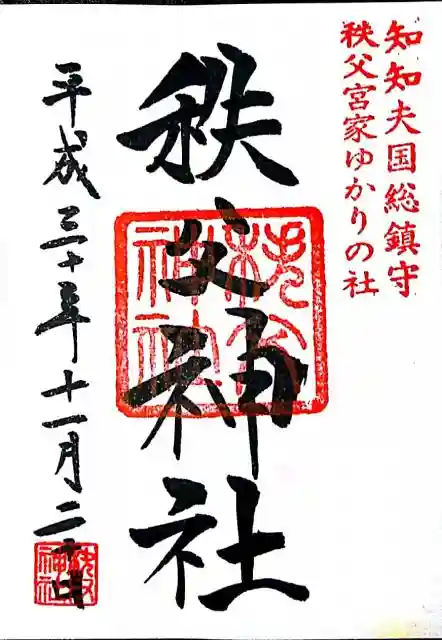 知知夫国総鎮守
秩父宮家ゆかりの社
秩父神社
秩父神社
平成三十年十一月二十日
秩父神社